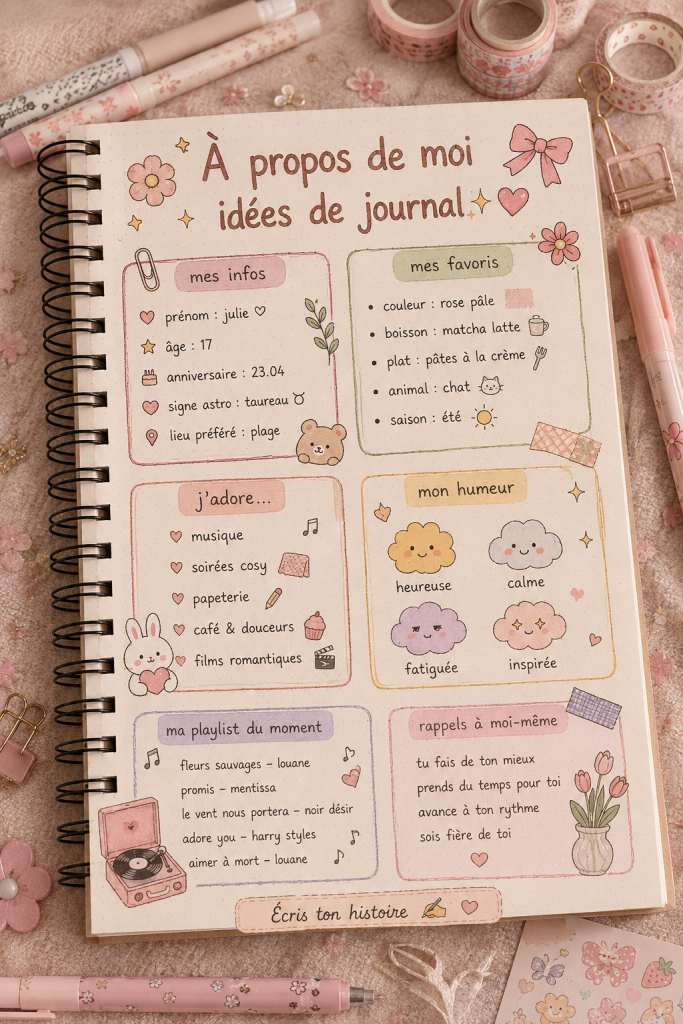 À propos de moi
idées de journal
mes infos
prénom : julie
âge : 17
anniversaire : 23.04
signe astro : taureau ♉
lieu préféré : plage
mes favoris
couleur : rose pâle
boisson : matcha latte
plat : pâtes à la crème
animal : chat
saison : été
j'adore...
musique
soirées cosy
papeterie
café & douceurs
films romantiques
mon humeur
heureuse
calme
fatiguée
inspirée
ma playlist du moment
fleurs sauvages – louane
promis – mentissa
le vent nous portera – noir désir
adore you – harry styles
aimer à mort – louane
rappels à moi-même
tu fais de ton mieux
prends du temps pour toi
avance à ton rythme
sois fière de toi
Écris ton histoire